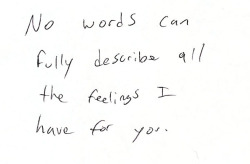 No words can
fully describe all
the feelings I
have for you.